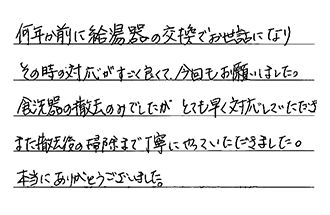 何年か前に給湯器の交換でお世話になり
その時の対応がすごく良くて、今回もお願いしました。
食洗器の撤去のみでしたが とても早く対応していただき
また撤去後の掃除まで丁寧にやっていただきました。
本当にありがとうございました。